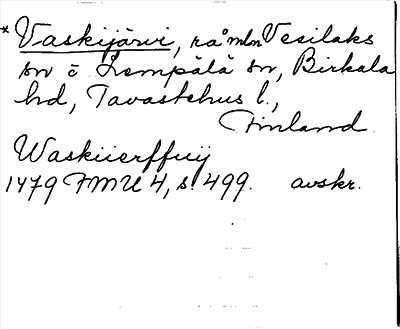 * Vaskijärvi, rå mln Vesilaks
sn o Lempälä sn, Birkala
hd, Tavastehus l.,
Finland.
Waskiierffuij
1479 FMU 4, s. 499. avskr.